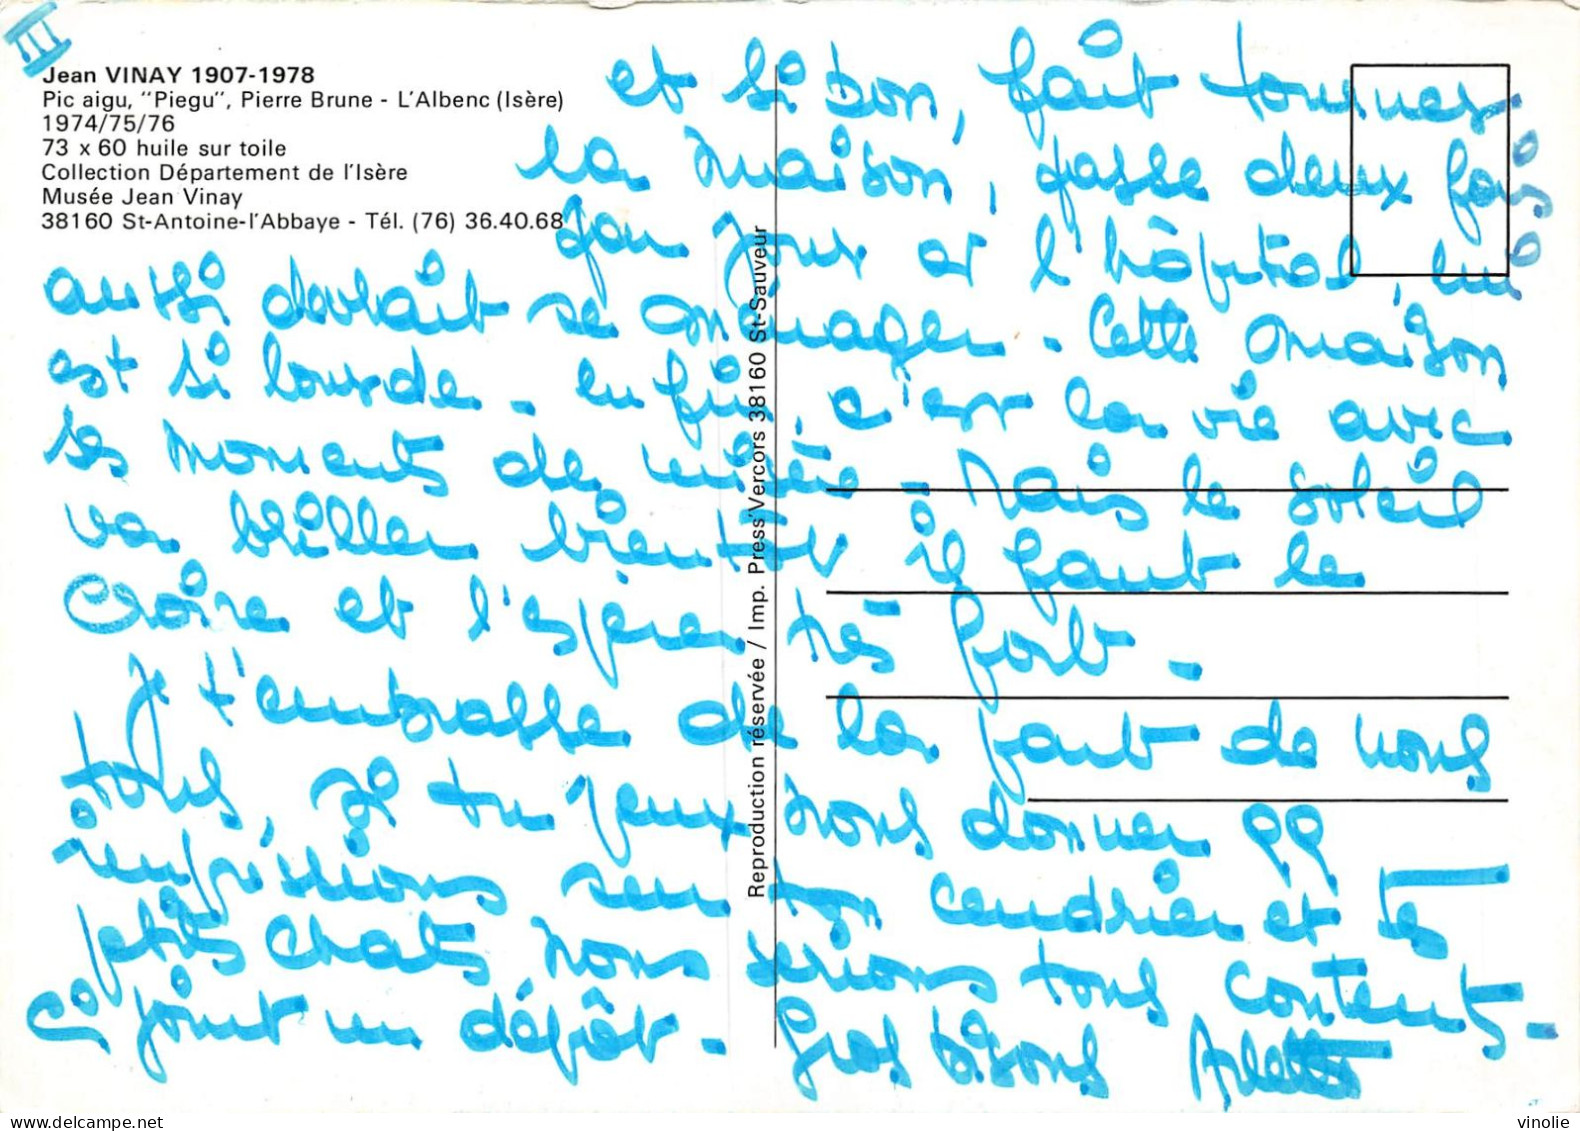 III
Jean VINAY 1907-1978
Pic aigu, "Piegu", Pierre Brune - L'Albenc (Isère)
1974/75/76
73 x 60 huile sur toile
Collection Département de l'Isère
Musée Jean Vinay
38160 St-Antoine-l'Abbaye - Tél. (76) 36.40.68
et si bon, fait tourner
la maison, passe deux fois
par jour à l'hôpital, lui
aussi devrait se ménager - Cette maison
est si lourde - enfin, c'est la vie avec
ses moments de misère - Mais le soleil
va briller bientôt il faut le
croire et l'espérer très fort -
Je t'embrasse de la part de nous
tous, si tu peux nous donner qq
impressions sur ton cendrier et tes
petits chats, nous serions tous contents -
Ci joint un dépôt - Gros bisous Arlette
Reproduction réservée / Imp. Press'Vercors 38160 St-Sauveur
vinolie